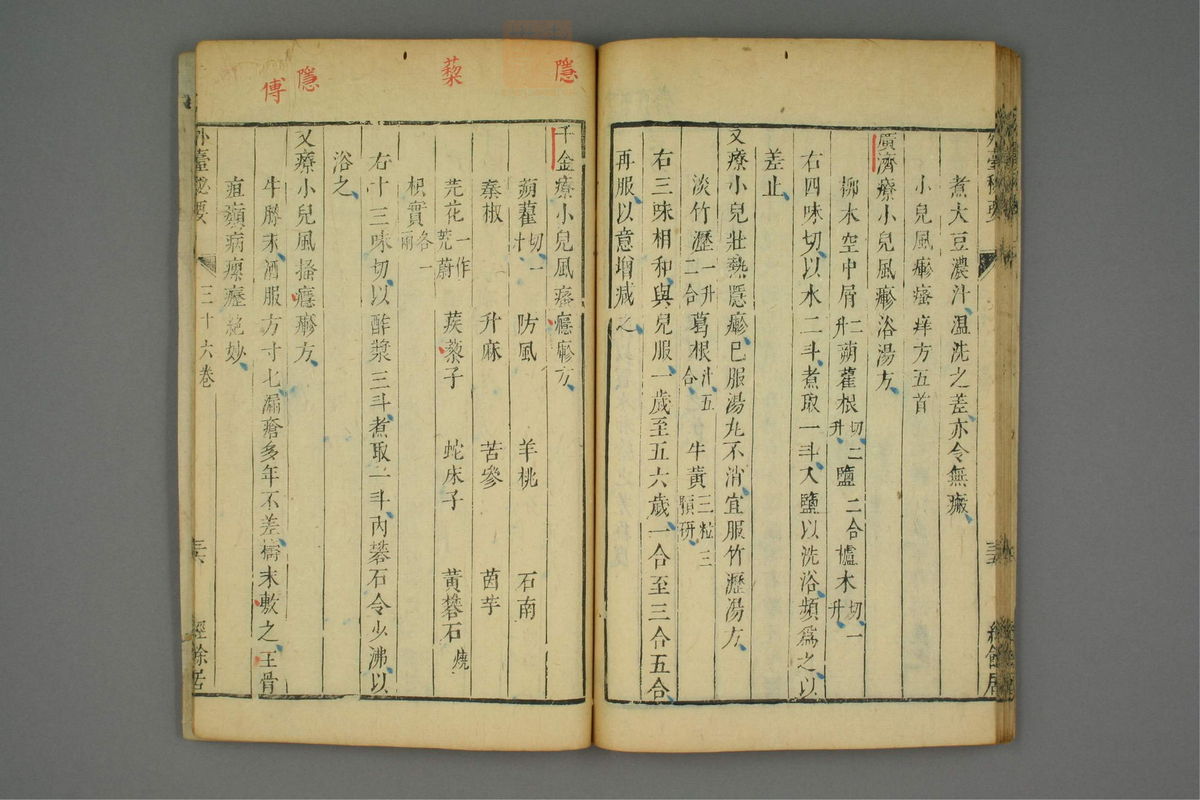 煮大豆濃汁温洗之差亦令無瘢
小兒風瘮瘙痒方五首
廣濟療小兒風瘮浴湯方
柳木空中屑二升 蒴藋根切二升 鹽二合 櫨木切一升
右四味切以水二斗煮取一斗入鹽以洗浴頻爲之以
差止
又療小兒壯熱隱瘮巳服湯丸不消宜服竹瀝湯方
淡竹瀝一升二合 葛根汁五合 牛黃三粒三顆研
右三味相和與兒服一歲至五六歲一合至三合五合
再服以意增减之
隱
藜
隱
傅
千金療小兒風瘙癮瘮方
蒴藋切一升 防風 羊桃 石南
秦椒 升麻 苦參 茵芋
芫花一作茺蔚 蒺藜子 蛇床子 黃礬石燒
枳實各一兩
右十三味切以酢漿三斗煮取二斗內礬石令少沸以
浴之
又療小兒風搔癮瘮方
牛膝末酒服方寸匕漏瘡多年不差擣末敷之主骨
疽癩病瘰癧絶妙
外臺秘要 三十六卷 經餘居